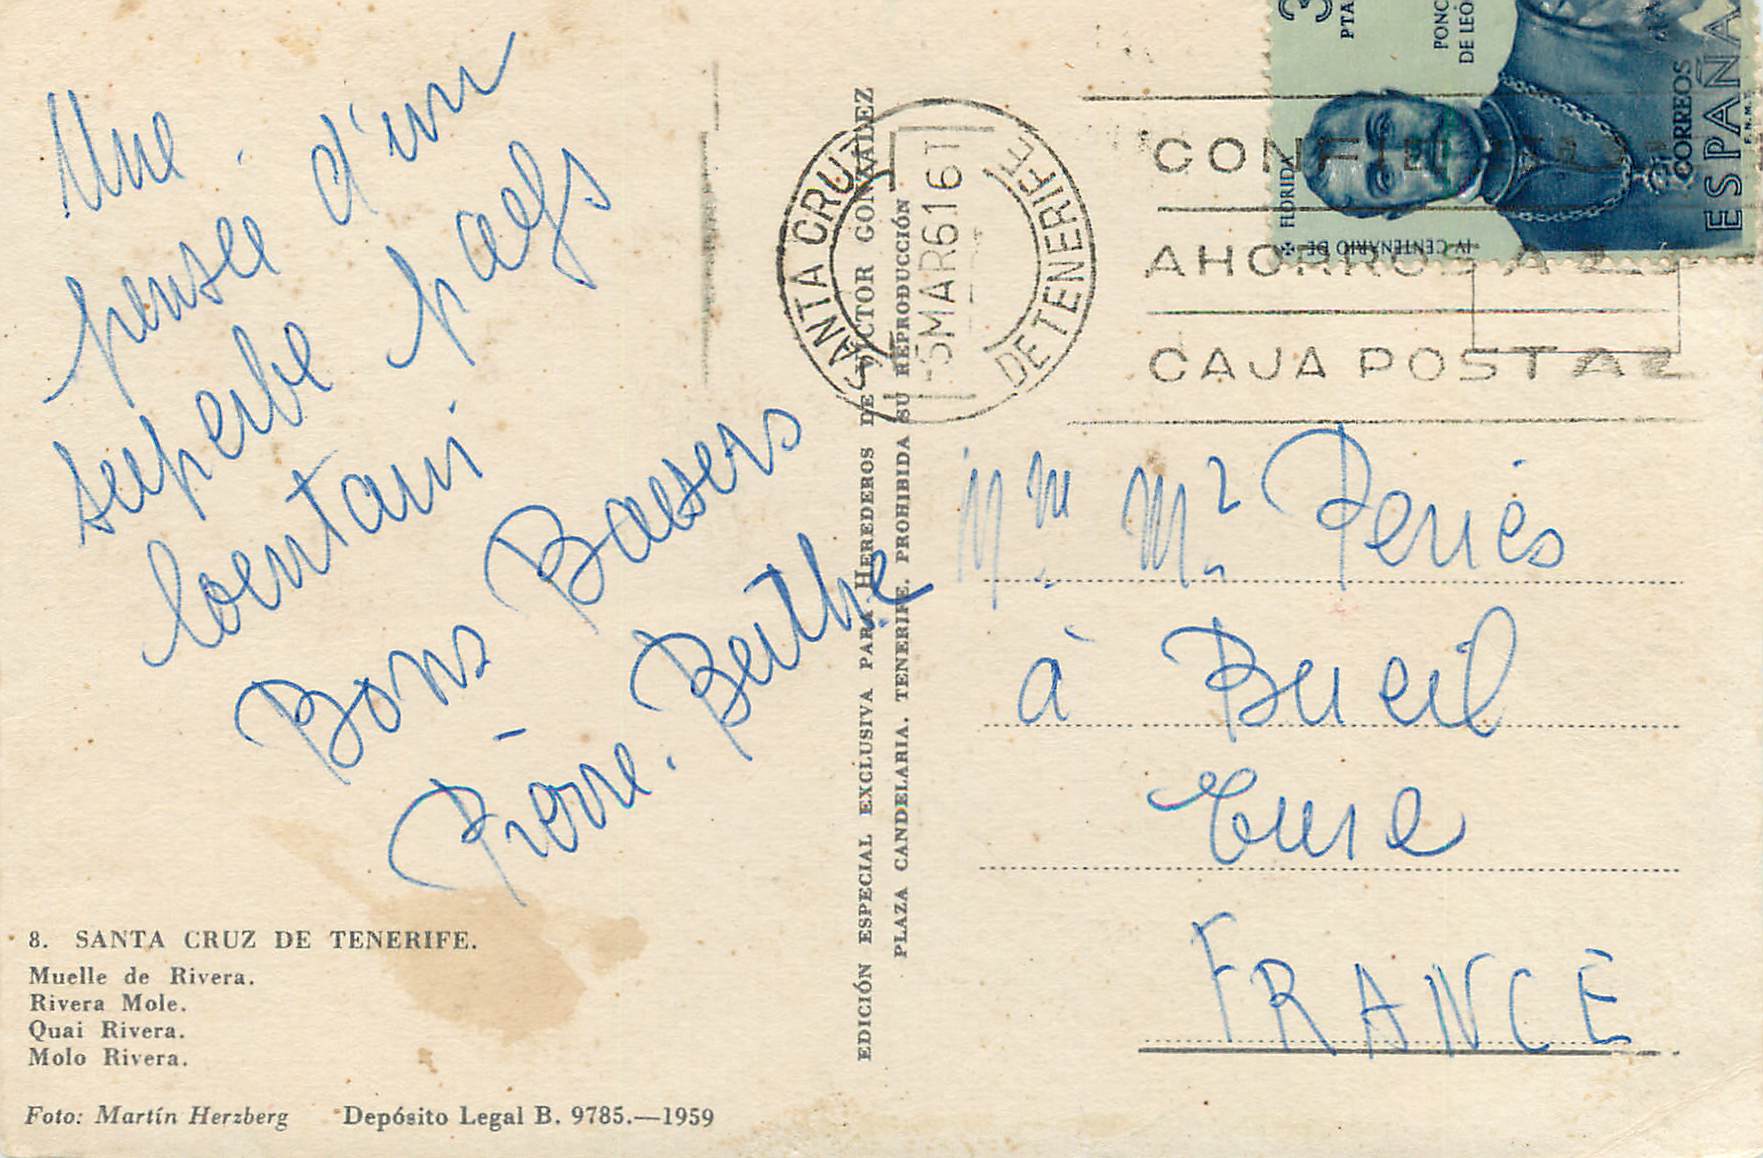 Une
pensée d'un
superbe pays
lointain
Bons Baisers
Pierre. Berthe
8. SANTA CRUZ DE TENERIFE.
Muelle de Rivera.
Rivera Mole.
Quai Rivera.
Molo Rivera.
Foto: Martín Herzberg Depósito Legal B. 9785.—1959
EDICIÓN ESPECIAL EXCLUSIVA PARA HEREDEROS DE VICTOR GONZÁLEZ
PLAZA CANDELARIA. TENERIFE. PROHIBIDA SU REPRODUCCIÓN
SANTA CRUZ
DE TENERIFE
5MAR61 6T
AHORROS A
CAJA POSTAL
3
PTA
PONC
DE LEÓ
IV CENTENARIO DE
FLORIDA
CORREOS
ESPAÑA
F.N.M.T.
à Bueil
Eure
FRANCE